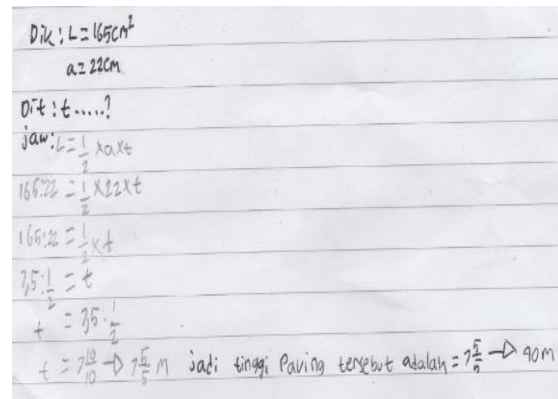 Dik : L = 165cm²
a = 22cm
Dit : t.....?
jaw: L = 1/2 x a x t
165:22 = 1/2 x 22 x t
165:22 = 1/2 x t
7,5 : 1/2 = t
t = 7,5 : 1/2
t = 7 10/10 → 7 5/5 M jadi tinggi Paving tersebut adalah = 7 5/5 → 40M